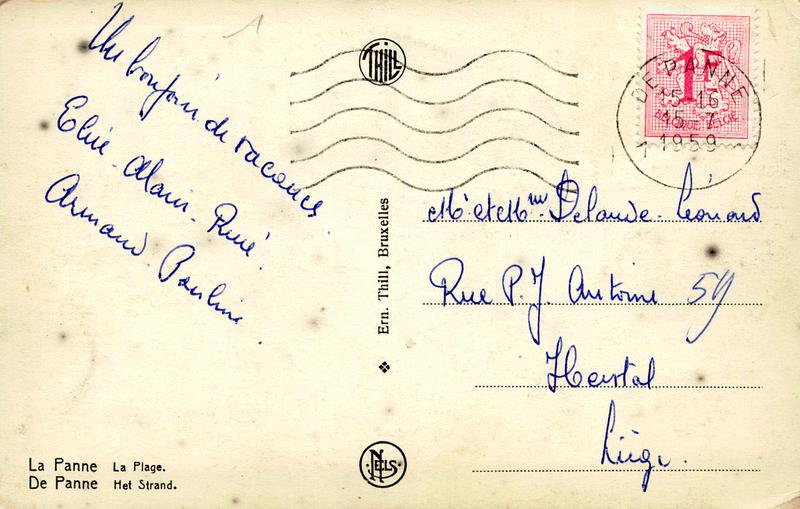 Un bonjour de vacances.
Elise - Alain - René.
Armand - Pauline.
THILL
Ern. Thill, Bruxelles
NELS
La Panne La Plage.
De Panne Het Strand.
1F
BELGIQUE-BELGIE
DE PANNE
15-16
15-7
1959
1
Mr et Mme Delaude-Léonard
Rue P.J. Antoine 59
Herstal
Liège.